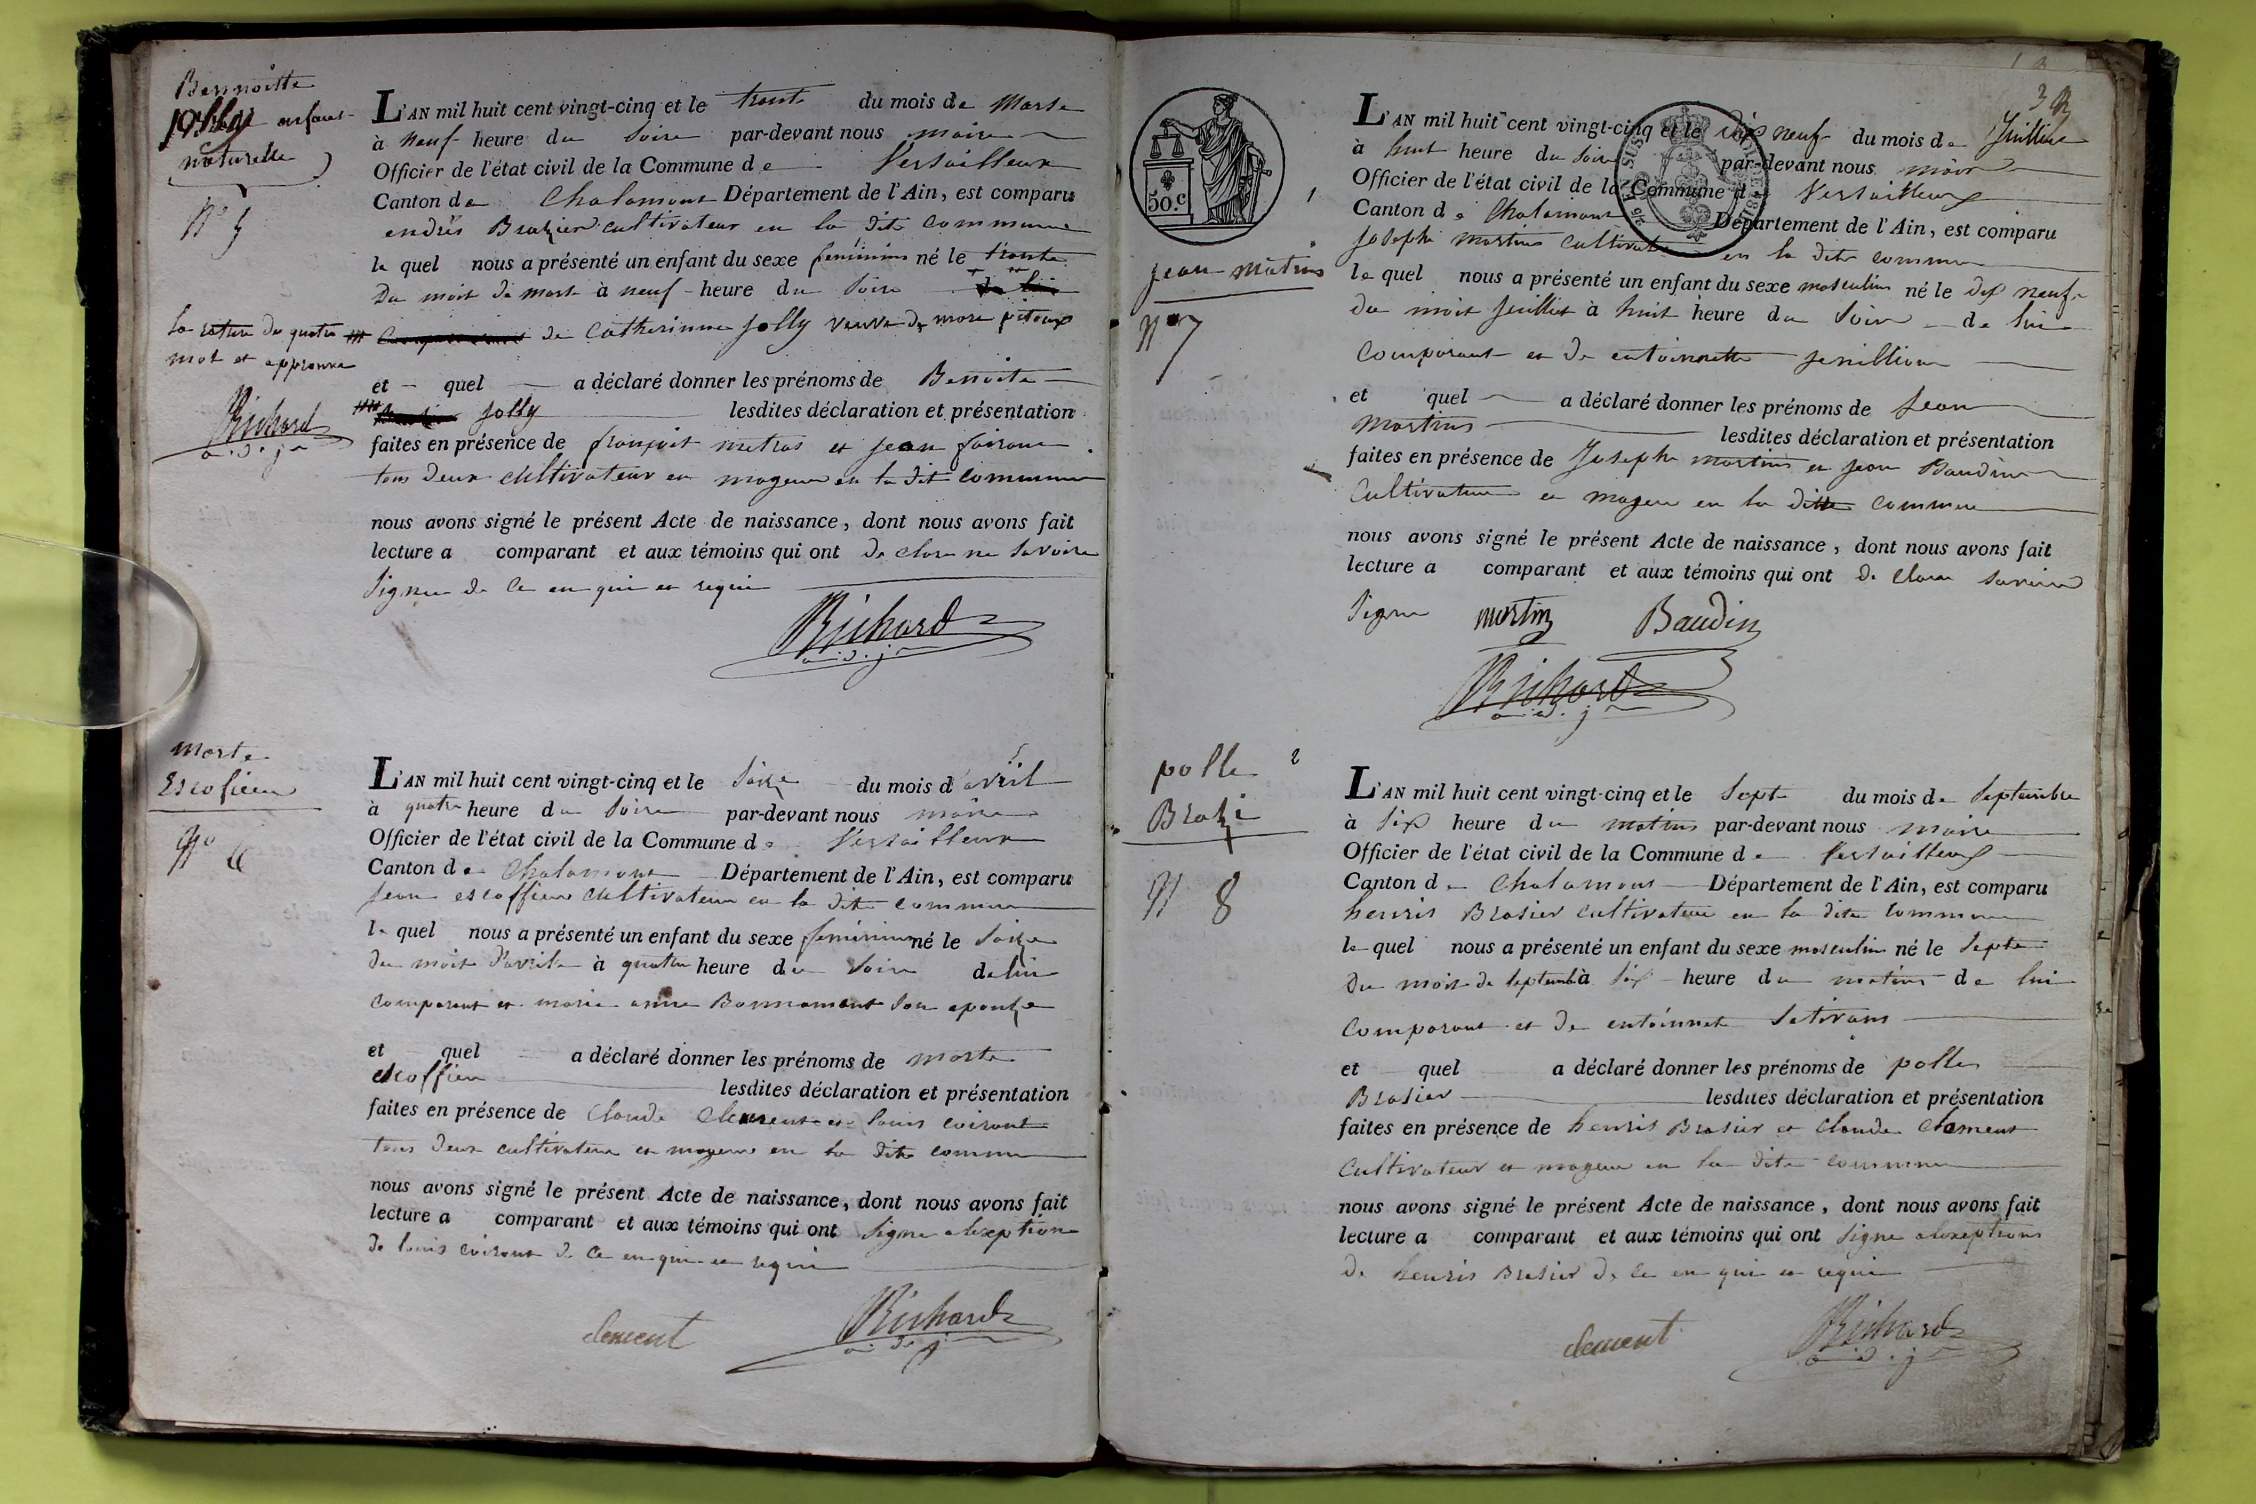 Bennoitte
jolly enfant
naturelle
N° 5
L'AN mil huit cent vingt-cinq et le trente du mois de Marse
à neuf heure du soire par-devant nous maire
Officier de l'état civil de la Commune de Versailleux
Canton de Chalamont Département de l'Ain, est comparu
endrés Brazier cultivateur en la dite commune
le quel nous a présenté un enfant du sexe féminins né le trente
du mois de mars à neuf heure du soire
de Catherinne jolly veuve de
la rature du quatre
mot et approuvé
Richard
a. d. j
et quel a déclaré donner les prénoms de Bennoite
jolly lesdites déclaration et présentation
faites en présence de françois metras et jean
tous deux cultivateur en mageur en la dit commune
nous avons signé le présent Acte de naissance, dont nous avons fait
lecture a comparant et aux témoins qui ont de clare ne savoire
signer de ce en qui et requi
Richard
a. d. j
marte
Escofieu
N° 6
L'AN mil huit cent vingt-cinq et le saize du mois d'avril
à quatre heure du soire par-devant nous maire
Officier de l'état civil de la Commune de Versailleux
Canton de Chalamont Département de l'Ain, est comparu
jean escoffieu cultivateur en la dite commune
le quel nous a présenté un enfant du sexe féminin né le saize
du mois d'avril à quatre heure du soire de lui
comparent et marie anne Bonnamant son epouse
et quel a déclaré donner les prénoms de marte
escoffieu lesdites déclaration et présentation
faites en présence de Claude Clement et louis coiront
tous deux cultivateur et mageur en la dite commune
nous avons signé le présent Acte de naissance, dont nous avons fait
lecture a comparant et aux témoins qui ont signe alexeption
de louis coiront de ce en qui et requi
clement Richard
a. d. j
50.c
jean matins
N° 7
L'AN mil huit cent vingt-cinq et le dix neuf du mois de Juilliet
à huit heure du soire par-devant nous maire
Officier de l'état civil de la Commune de Versailleux
Canton de Chalamont Département de l'Ain, est comparu
joseph martins cultivateur en la dite commune
le quel nous a présenté un enfant du sexe masculin né le dix neuf
du mois juilliet à huit heure du soire de lui
comparant et de entoinnette
et quel a déclaré donner les prénoms de jean
martins lesdites déclaration et présentation
faites en présence de Joseph martins et jean Baudin
cultivateur et mageur en la ditte commune
nous avons signé le présent Acte de naissance, dont nous avons fait
lecture a comparant et aux témoins qui ont de clare savoire
signe martin Baudin
Richard
a. d. j
polle
Brazi
N 8
L'AN mil huit cent vingt-cinq et le sept du mois de septembre
à six heure du matins par-devant nous maire
Officier de l'état civil de la Commune de Versailleux
Canton de Chalamont Département de l'Ain, est comparu
henris Brasier cultivateur en la dite commune
le quel nous a présenté un enfant du sexe masculin né le septe
du mois de septembre à six heure du matins de lui
comparant et de entoinnet
et quel a déclaré donner les prénoms de polle
Brasier lesdites déclaration et présentation
faites en présence de henris Brasier et Claude Clement
cultivateur et mageur en la dite commune
nous avons signé le présent Acte de naissance, dont nous avons fait
lecture a comparant et aux témoins qui ont signe alexeptions
de henris Brasier de ce en qui et requi
clement Richard
a. d. j